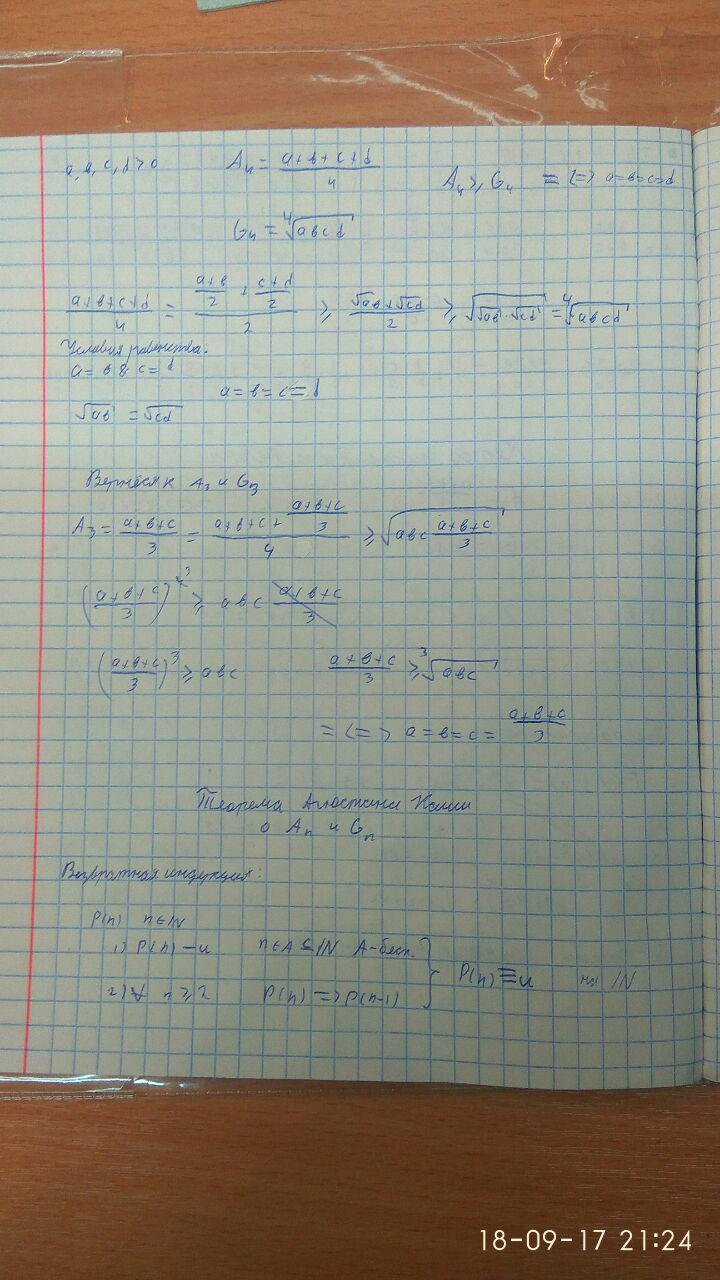 a, b, c, d > 0    A₄ = (a+b+c+d)/4    A₄ ≥ G₄    = <=> a=b=c=d
G₄ = ⁴√(abcd)
(a+b+c+d)/4 = ((a+b)/2 + (c+d)/2)/2 ≥ (√ab + √cd)/2 ≥ √(√ab · √cd) = ⁴√(abcd)
Условия равенства:
a = b & c = d
a = b = c = d
√ab = √cd
Вернёмся к A₃ и G₃
A₃ = (a+b+c)/3 = (a+b+c + (a+b+c)/3)/4 ≥ √(abc (a+b+c)/3)
((a+b+c)/3)³ ≥ abc (a+b+c)/3
((a+b+c)/3)³ ≥ abc    (a+b+c)/3 ≥ ³√(abc)
= <=> a = b = c = (a+b+c)/3
Теорема Огюстена Коши
о Aₙ и Gₙ
Возвратная индукция:
P(n) n∈ℕ
1) P(n) – и    n∈A ⊆ ℕ A-беск.
2) ∀ n ≥ 2    P(n) => P(n-1) } P(n) ≡ и на ℕ
18-09-17 21:24